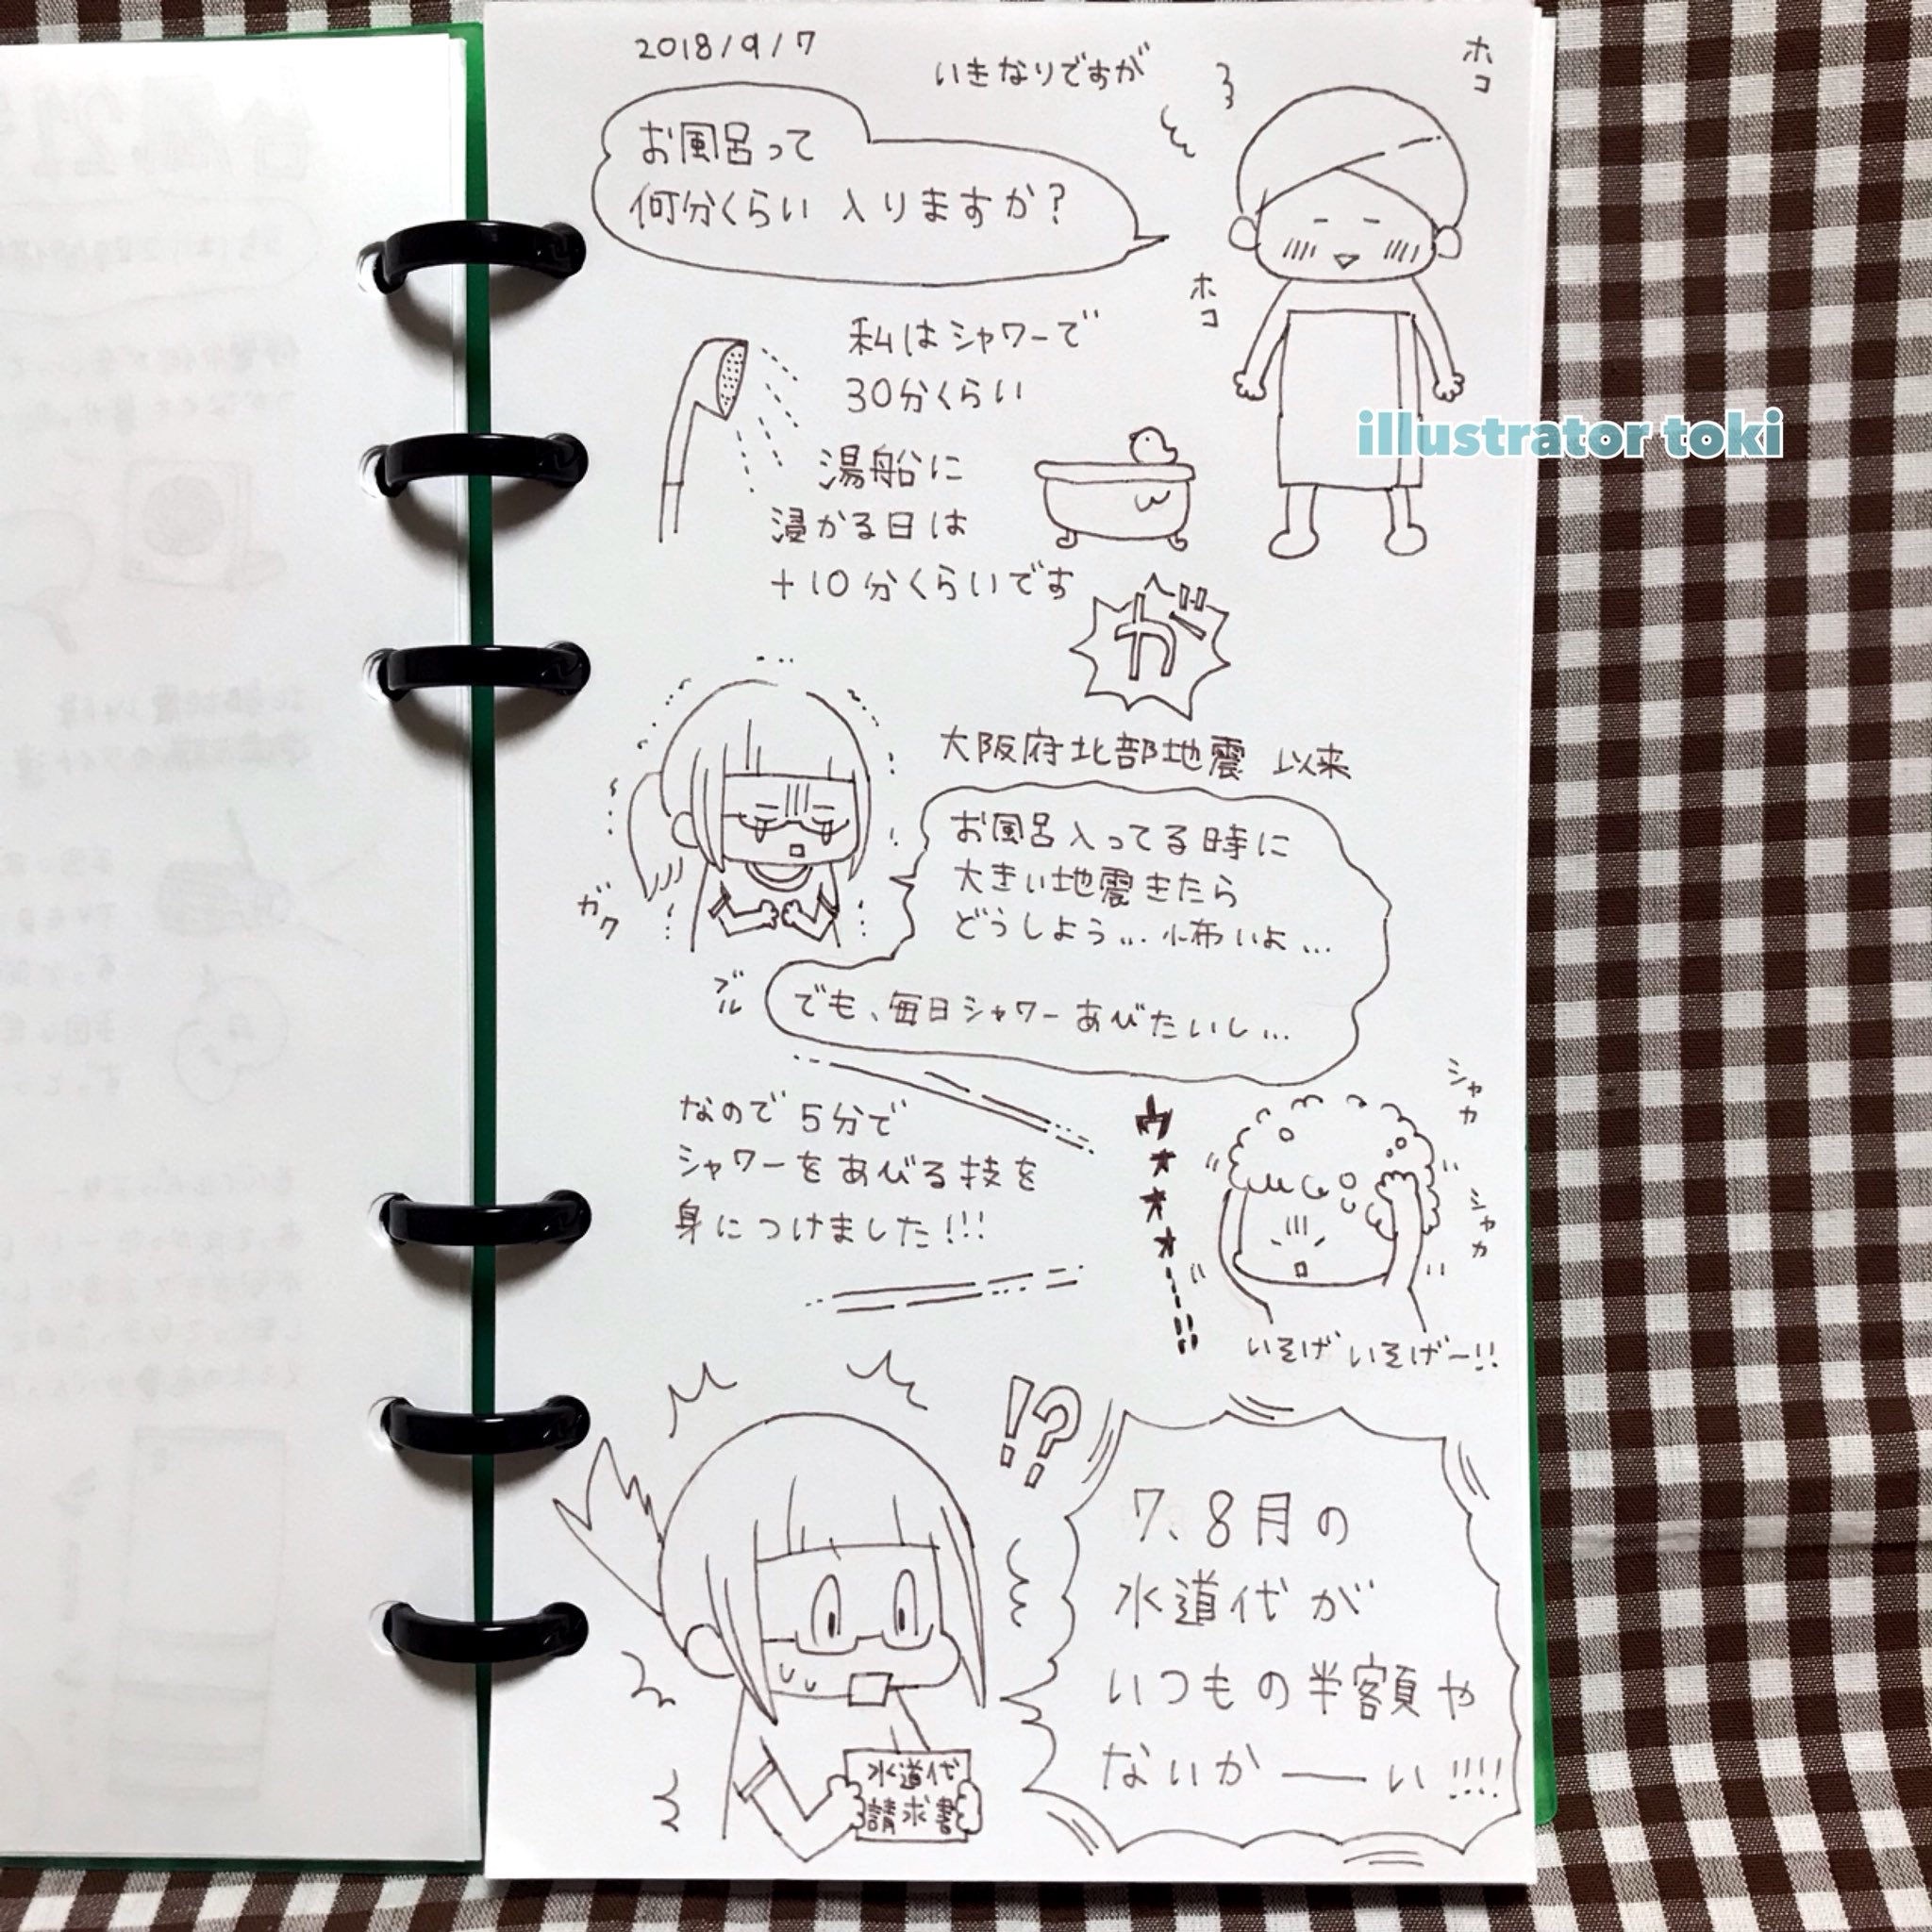 2018/9/7
いきなりですが
お風呂って
何分くらい入りますか?
ホコ
ホコ
私はシャワーで
30分くらい
湯船に
浸かる日は
+10分くらいです
が
illustrator toki
大阪府北部地震 以来
お風呂入ってる時に
大きい地震きたら
どうしよう… 怖いよ…
でも、毎日シャワーあびたいし…
ガク
ブル
なので5分で
シャワーをあびる技を
身につけました!!!
ウオオオー!!
シャカ
シャカ
いそげいそげー!!
!?
7、8月の
水道代が
いつもの半額や
ないかーーい!!!!
水道代
請求書